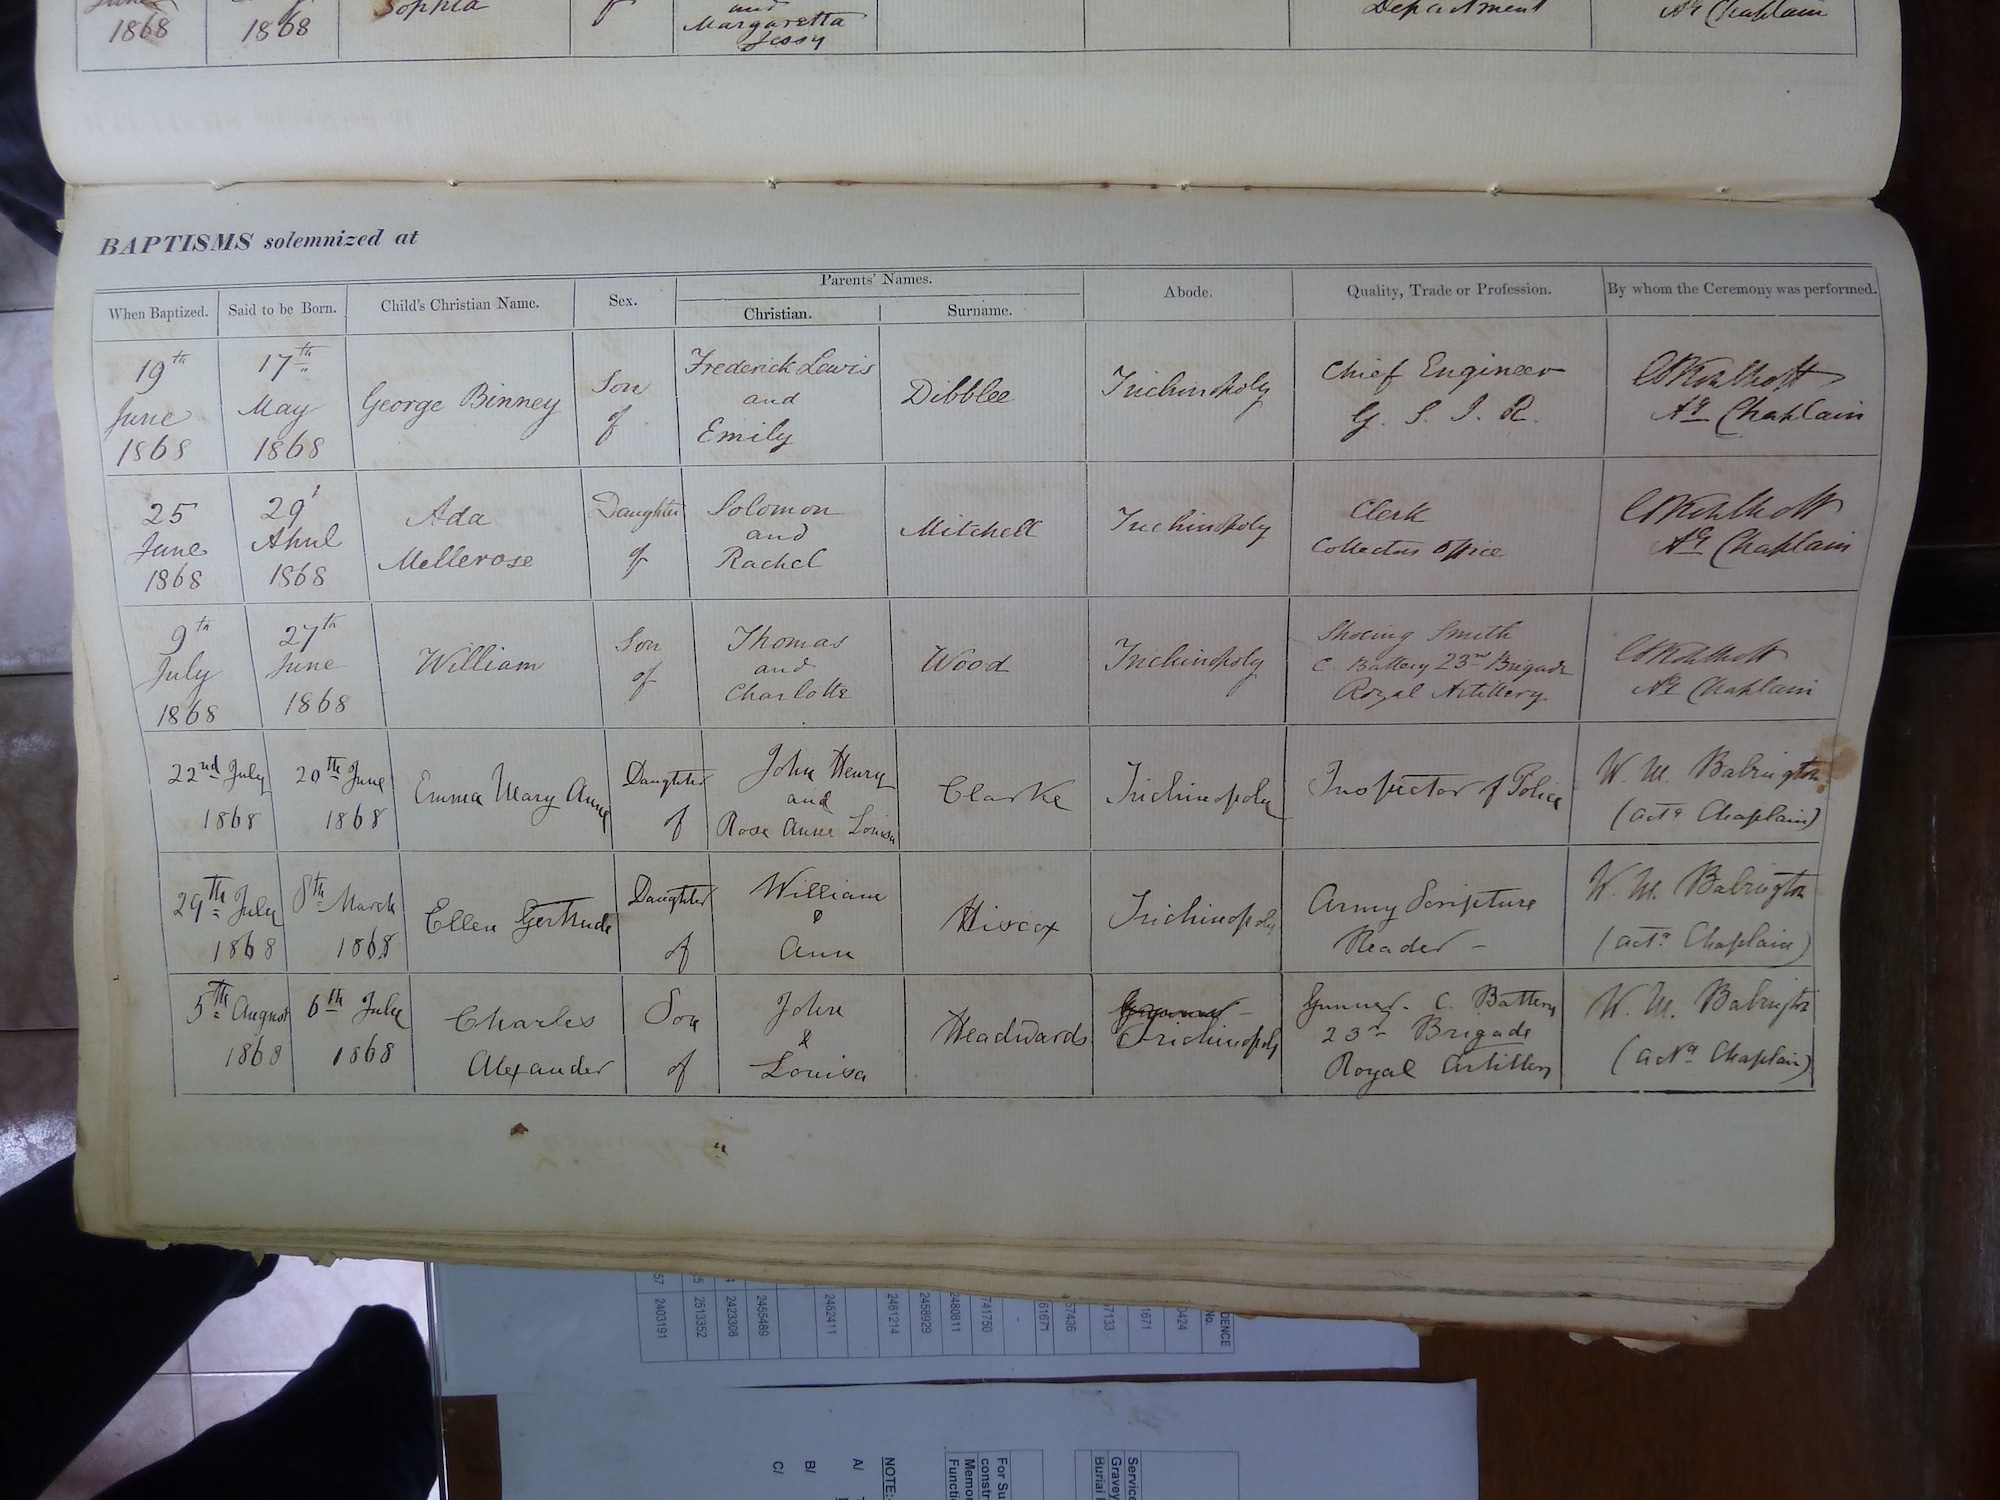 1868 1868 Sophia of and Margaretta Jessy Department Ag Chaplain
BAPTISMS solemnized at
When Baptized. Said to be Born. Child's Christian Name. Sex. Parents' Names. Abode. Quality, Trade or Profession. By whom the Ceremony was performed.
Christian. Surname.
19th June 1868 17th May 1868 George Binney Son of Frederick Lewis and Emily Dibblee Trichinopoly Chief Engineer G. S. I. R. Ag Chaplain
25 June 1868 29 April 1868 Ada Mellerose Daughter of Solomon and Rachel Mitchell Trichinopoly Clerk Collectors office Ag Chaplain
9th July 1868 27th June 1868 William Son of Thomas and Charlotte Wood Trichinopoly Shoeing Smith C. Battery 23rd Brigade Royal Artillery Ag Chaplain
22nd July 1868 20th June 1868 Emma Mary Anne Daughter of John Henry and Rose Anne Louisa Clarke Trichinopoly Inspector of Police W. M. Babington (actg Chaplain)
29th July 1868 8th March 1868 Ellen Gertrude Daughter of William & Ann Hiscox Trichinopoly Army Scripture Reader - W. M. Babington (actg Chaplain)
5th August 1868 6th July 1868 Charles Alexander Son of John & Louisa Headwards Trichinopoly Gunner. C. Battery 23rd Brigade Royal Artillery W. M. Babington (actg Chaplain)
57 2403191
2513352
2423308
2455489
2482411
2481214
2458929
2480811
741750
61671
57436
7133
1671
0424
DENCE No.
C/
B/
A/
NOTE:
Functi
Memor
constr
For Su
Burial
Gravey
Service